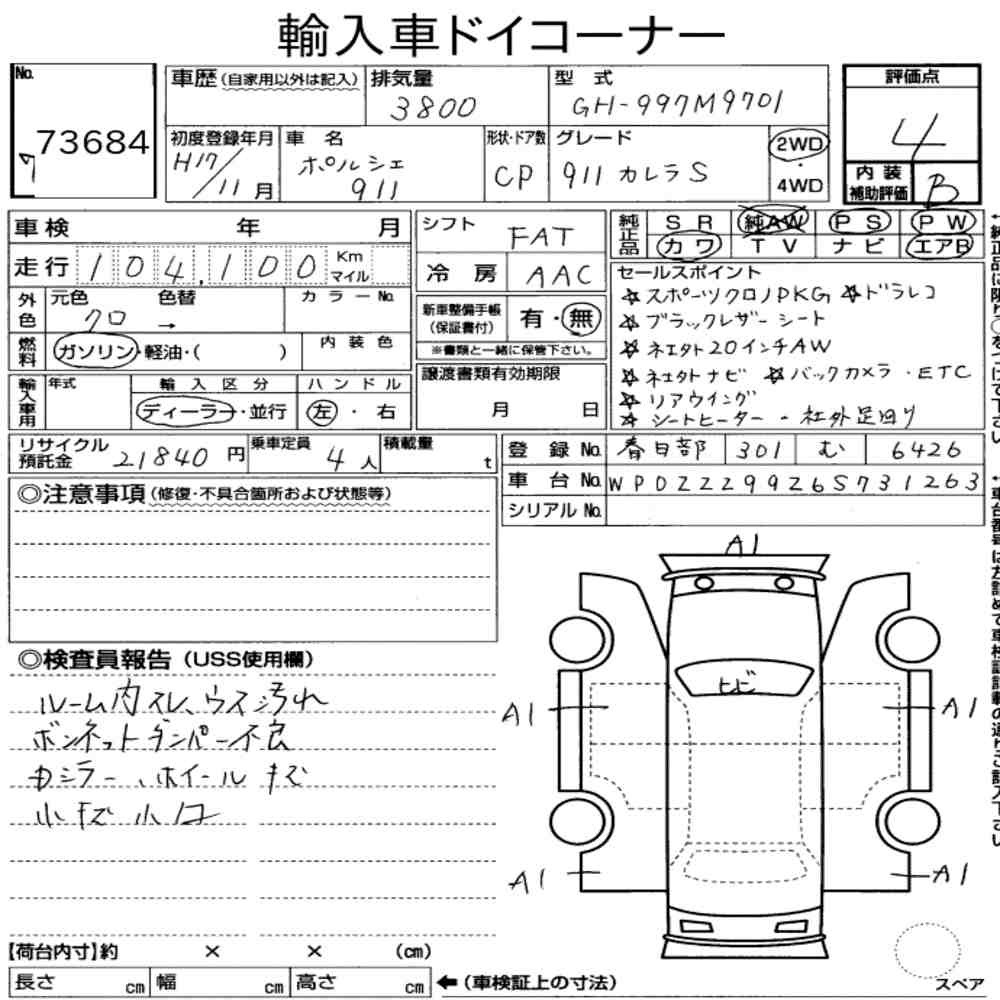 輸入車ドイコーナー
No. 73684
車歴 (自家用以外は記入)
排気量 3800
型式 GH-997M9701
評価点 4
初度登録年月 H17/11月
車名 ポルシェ 911
形状・ドア数 CP
グレード 911 カレラS
2WD・4WD
内装補助評価 B
車検 年 月
走行 104,100 Km マイル
シフト FAT
冷房 AAC
純正品 SR 純AW PS PW
カワ TV ナビ エアB
外色 元色 クロ 色替 → カラーNo.
燃料 ガソリン・軽油・( ) 内装色
新車整備手帳(保証書付) 有・無
※書類と一緒に保管下さい。
セールスポイント
☆スポーツクロノPKG ☆ドラレコ
☆ブラックレザーシート
☆ネエタト20インチAW
☆ネエタトナビ ☆バックカメラ・ETC
☆リアウイング
☆シートヒーター・社外足回り
輸入車用 年式 輸入区分 ディーラー・並行 ハンドル 左・右
譲渡書類有効期限 月 日
リサイクル預託金 21840円
乗車定員 4人
積載量 t
登録No. 春日部 301 む 6426
車台No. WP0ZZZ99Z6S731263
シリアルNo.
◎注意事項 (修復・不具合箇所および状態等)
◎検査員報告 (USS使用欄)
ルーム内スレ、ウス汚れ
ボンネットダンパー不良
ミラー、ホイールキズ
小キズ小凹
A1
ヒビ
A1
A1
A1
A1
【荷台内寸】約 × × (cm)
長さ cm 幅 cm 高さ cm ←(車検証上の寸法)
スペア
←純正品に限り○をつけて下さい
←車台番号は左詰めで車検証記載の通りご記入下さい